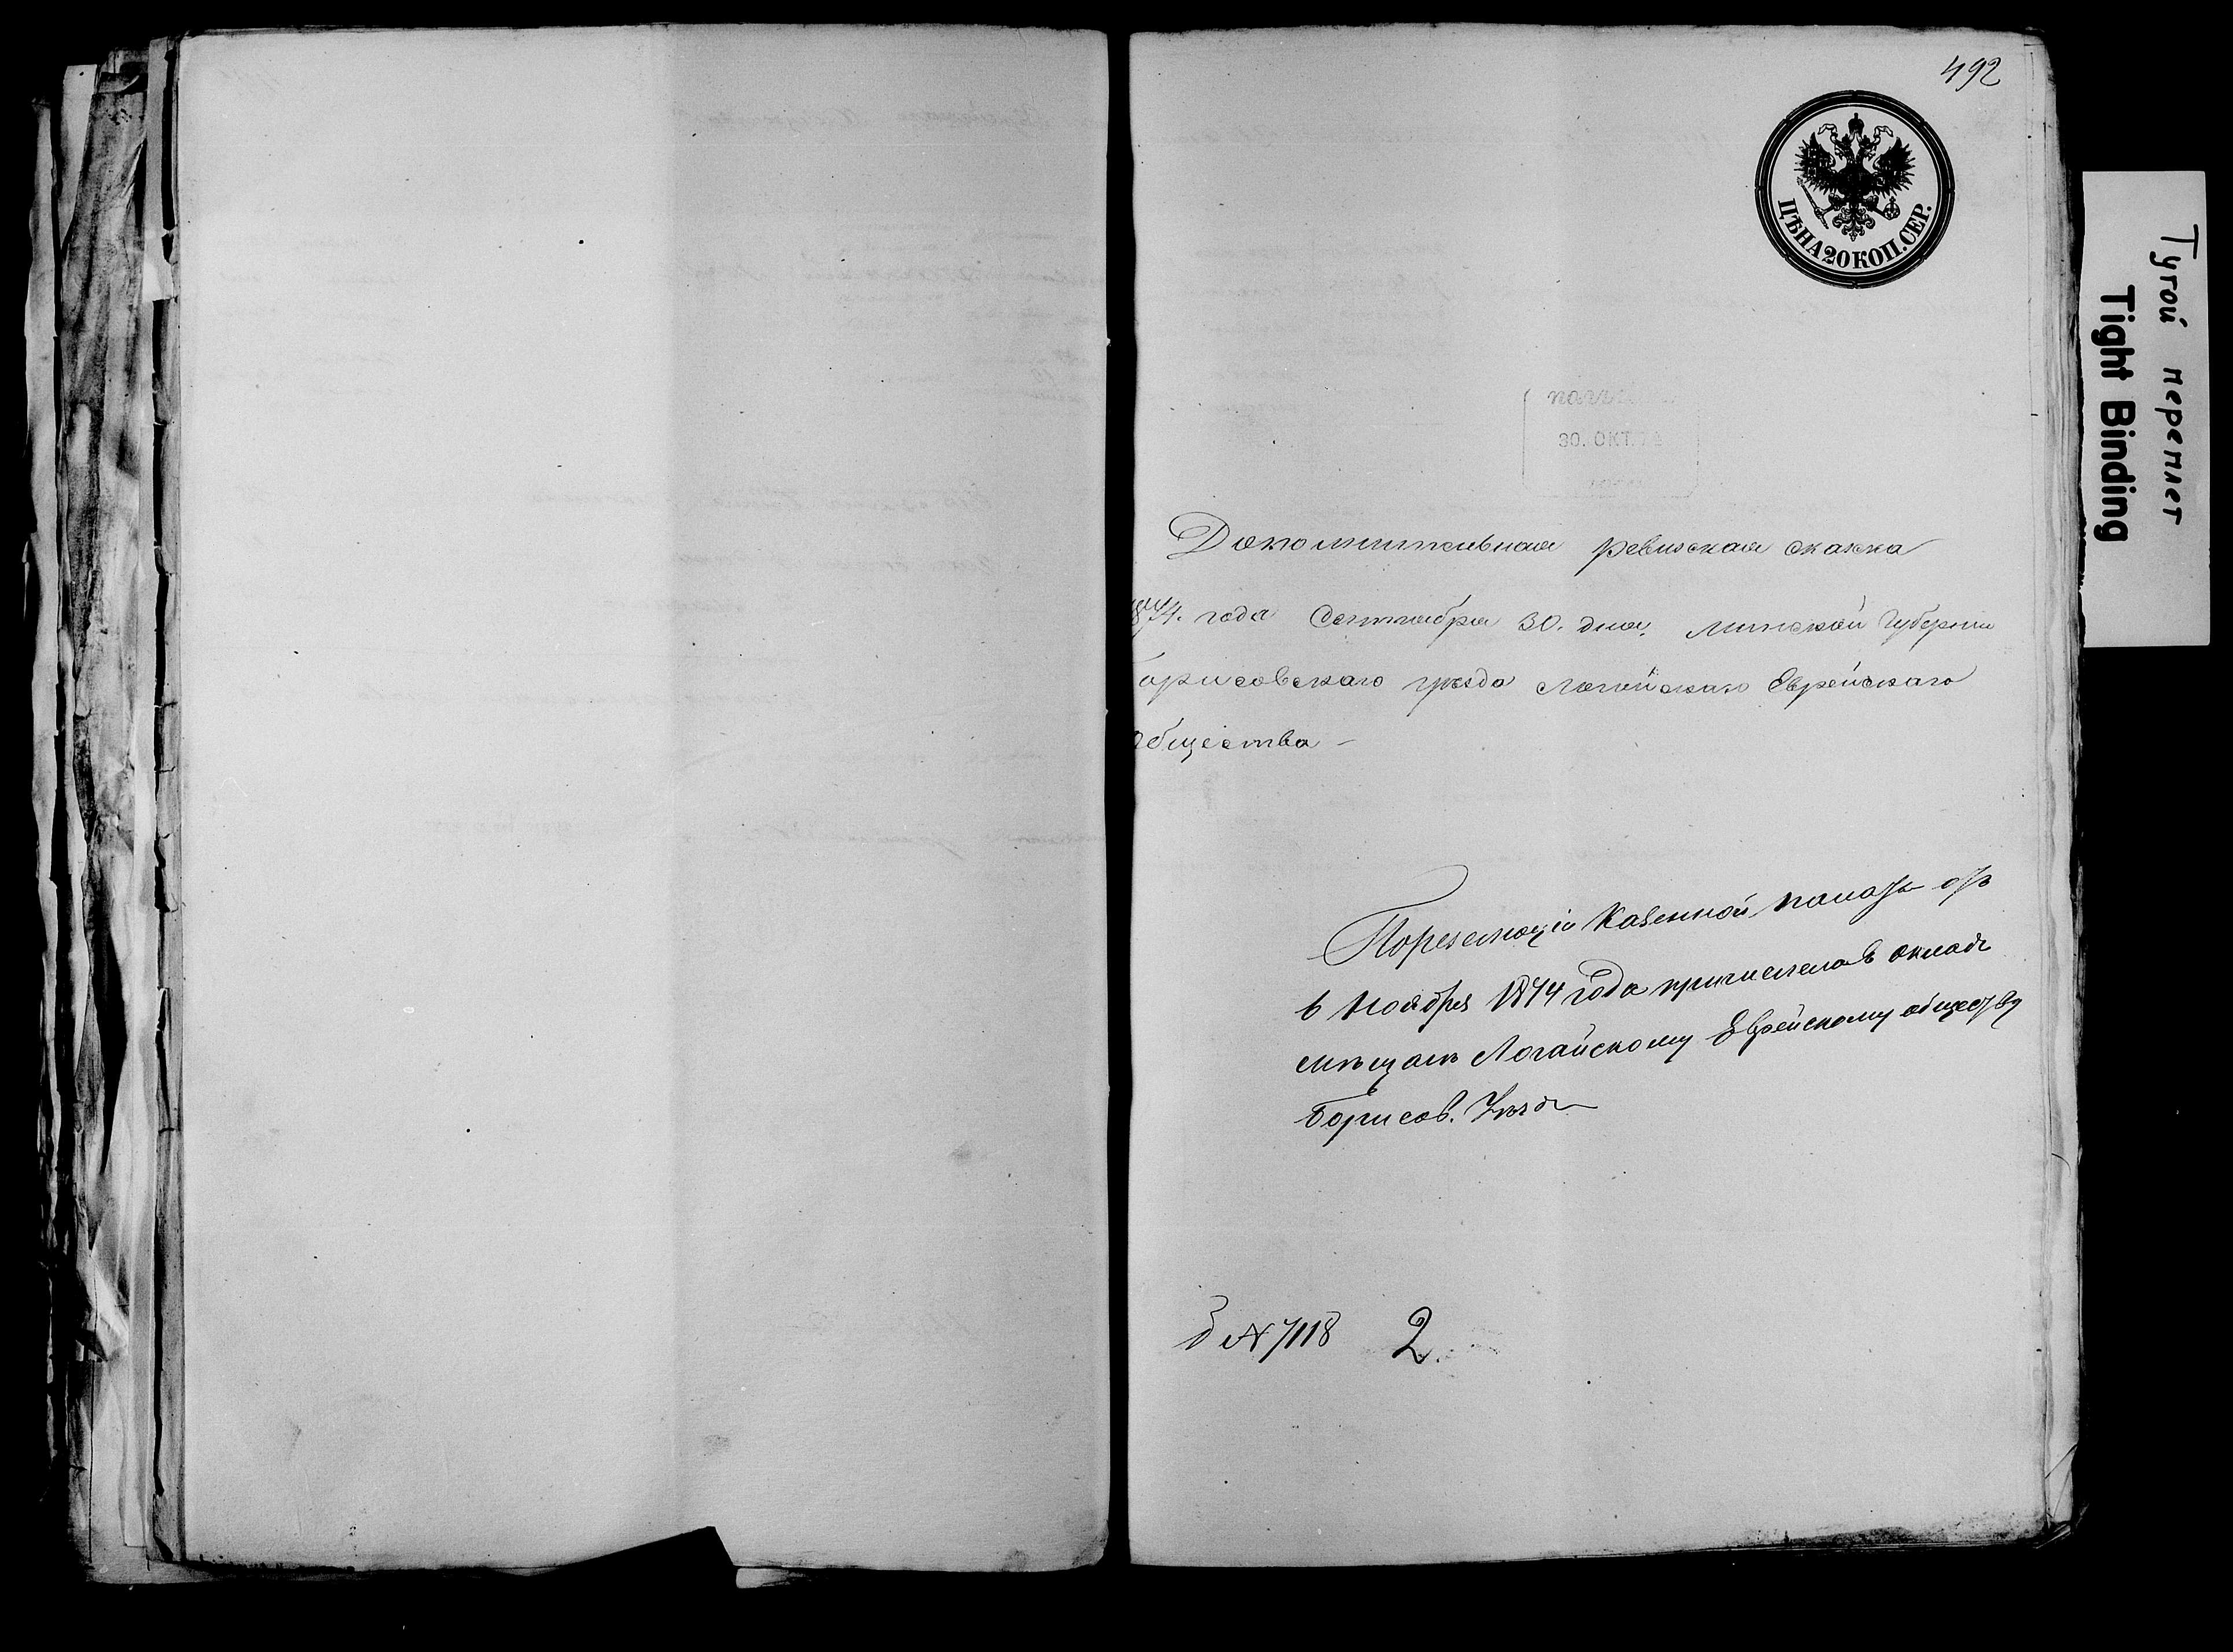 492
ЦѢНА 20 КОП. СЕР.
Тугой переплет
Tight Binding
30. ОКТ. 74
Дополнительная ревизская сказка
1874. года Сентября 30. дня, Минской Губернии
Борисовскаго уѣзда Логойскаго Еврейскаго
общества –
По резолюціи Казенной палаты отъ
6 Ноября 1874 года причислена в окладъ
мѣщанъ Логайскому Еврейскому обществу
Борисов. Уѣзда
№ 7118 2.